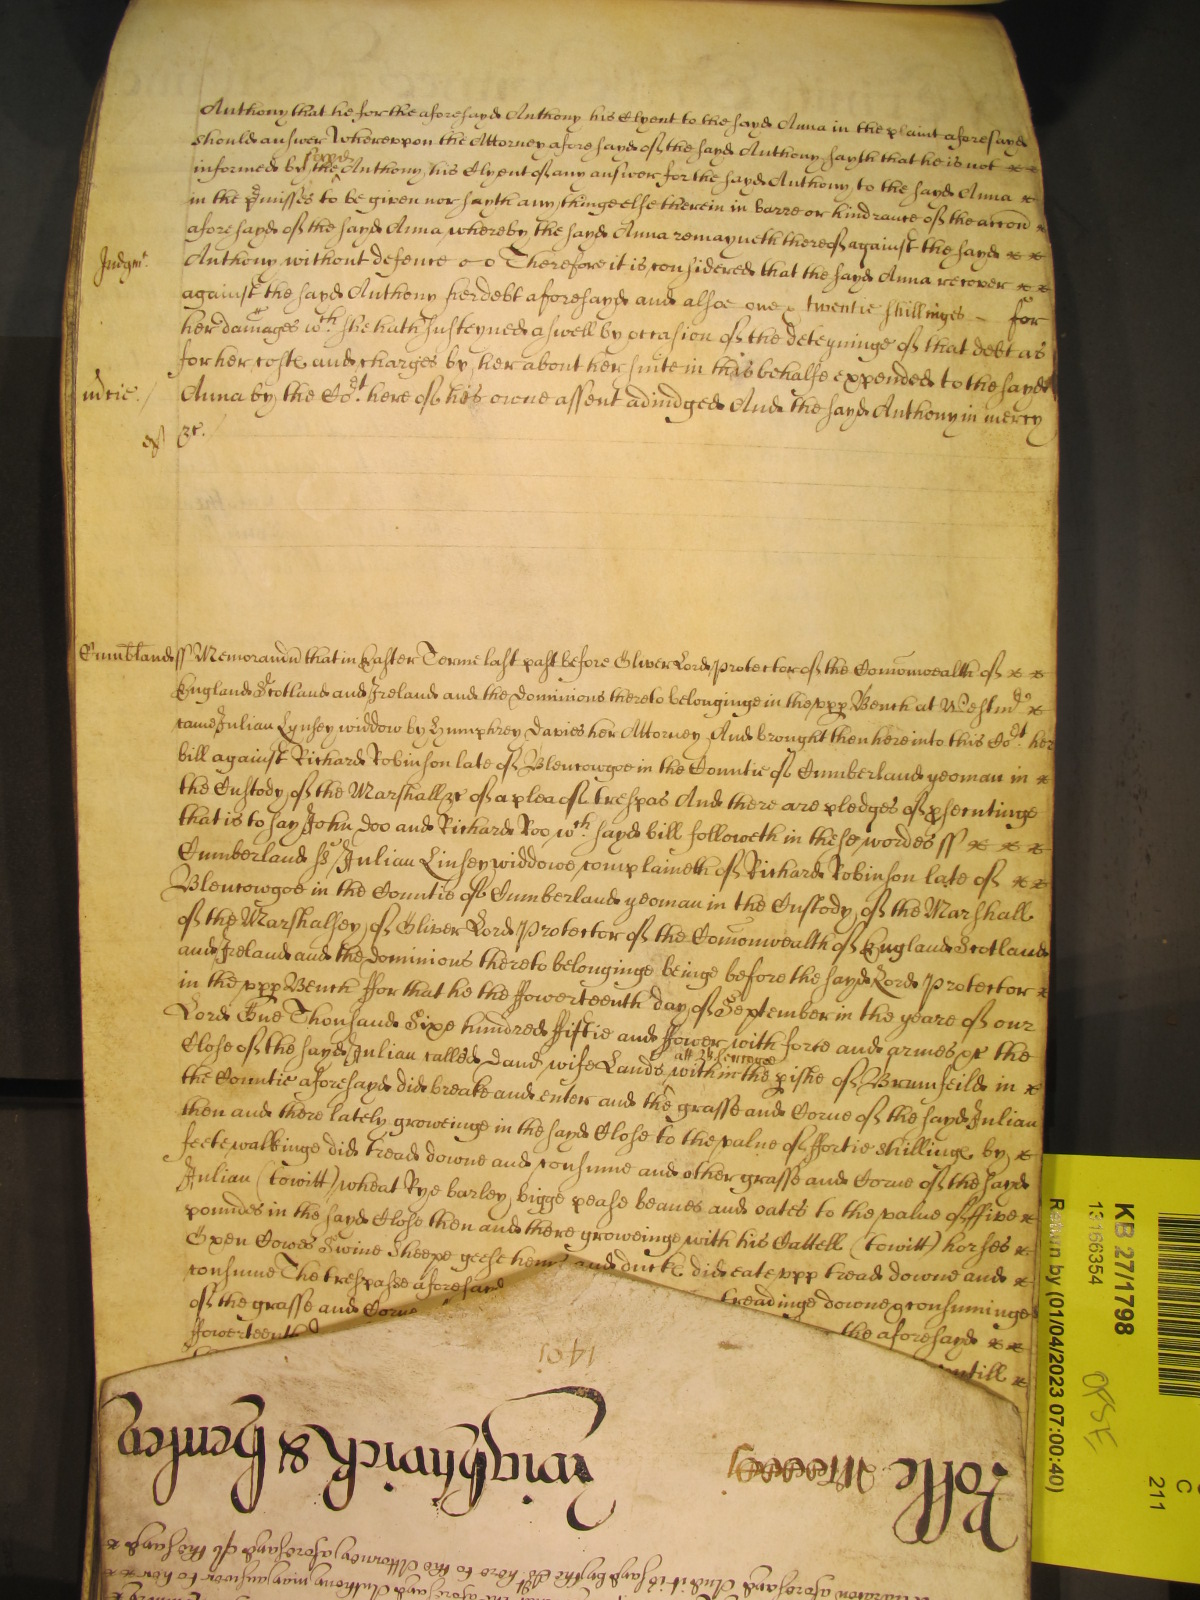 Anthony that he for the aforesayd Anthony his Clyent to the sayd Anna in the plaint aforesayd
should answer Whereuppon the Attorney aforesayd of the sayd Anthony sayth that he is not
informed by the sayd Anthony his Clyent of any answer for the sayd Anthony to the sayd Anna
in the pmisses to be given nor sayth any thinge else therein in barre or hindrance of the accon
aforesayd of the sayd Anna whereby the sayd Anna remayneth thereof against the sayd
Judgmt. Anthony without defence Therefore it is considered that the sayd Anna recover
against the sayd Anthony her debt aforesayd and alsoe one & twentie shillinges for
her damages wch she hath susteyned aswell by occasion of the deteyninge of that debt as
for her costs and charges by her about her suite in this behalfe expended to the sayd
mcie. Anna by the Cort here of his owne assent adiudged And the sayd Anthony in mercy
&c.
Cumbland ss Memorandu that in Easter Terme last past before Oliver Lord Protector of the Comonwealth of
England Scotland and Ireland and the Dominions thereto belonginge in the upp Bench at Westmr
came Julian Lynsey widdow by Humphrey Davies her Attorney And brought then here into this Cort her
bill against Richard Robinson late of Blencowgoe in the Countie of Cumberland yeoman in
the Custody of the Marshall &c of a plea of trespas And there are pledges of psecutinge
that is to say John Doo and Richard Roo wch sayd bill followeth in these wordes ss
Cumberland ss Julian Linsey widdowe complaineth of Richard Robinson late of
Blencowgoe in the Countie of Cumberland yeoman in the Custody of the Marshall
of the Marshalsey of Oliver Lord Protector of the Comonwealth of England Scotland
and Ireland and the Dominions thereto belonginge beinge before the sayd Lord Protector
in the upp Bench ffor that he the ffowerteenth day of September in the yeare of our
Lord One Thousand Sixe hundred ffiftie and ffower with force and armes &c the
Close of the sayd Julian called Dand wife Lands att Blencogoe within the pishe of Brumfeild in
the Countie aforesayd did breake and enter and the grasse and Corne of the sayd Julian
then and there lately groweinge in the sayd Close to the value of ffortie shillings by
feete walkinge did tread downe and consume and other grasse and Corne of the sayd
Julian (towitt) wheat Rye barley bigge pease beanes and oates to the value of ffive
poundes in the sayd Close then and there groweinge with his Cattell (towitt) horses
Oxen Cowes Swine Sheepe geese henns and ducks did eate upp tread downe and
consume The trespasse aforesayd treadinge downe & consuminge
of the grasse and Corne the aforesayd
ffowerteenth untill
1401
Wightwick & Henley
Rolle
KB 27/1798
13166354
Return by (01/04/2023 07:00:40)
C
211